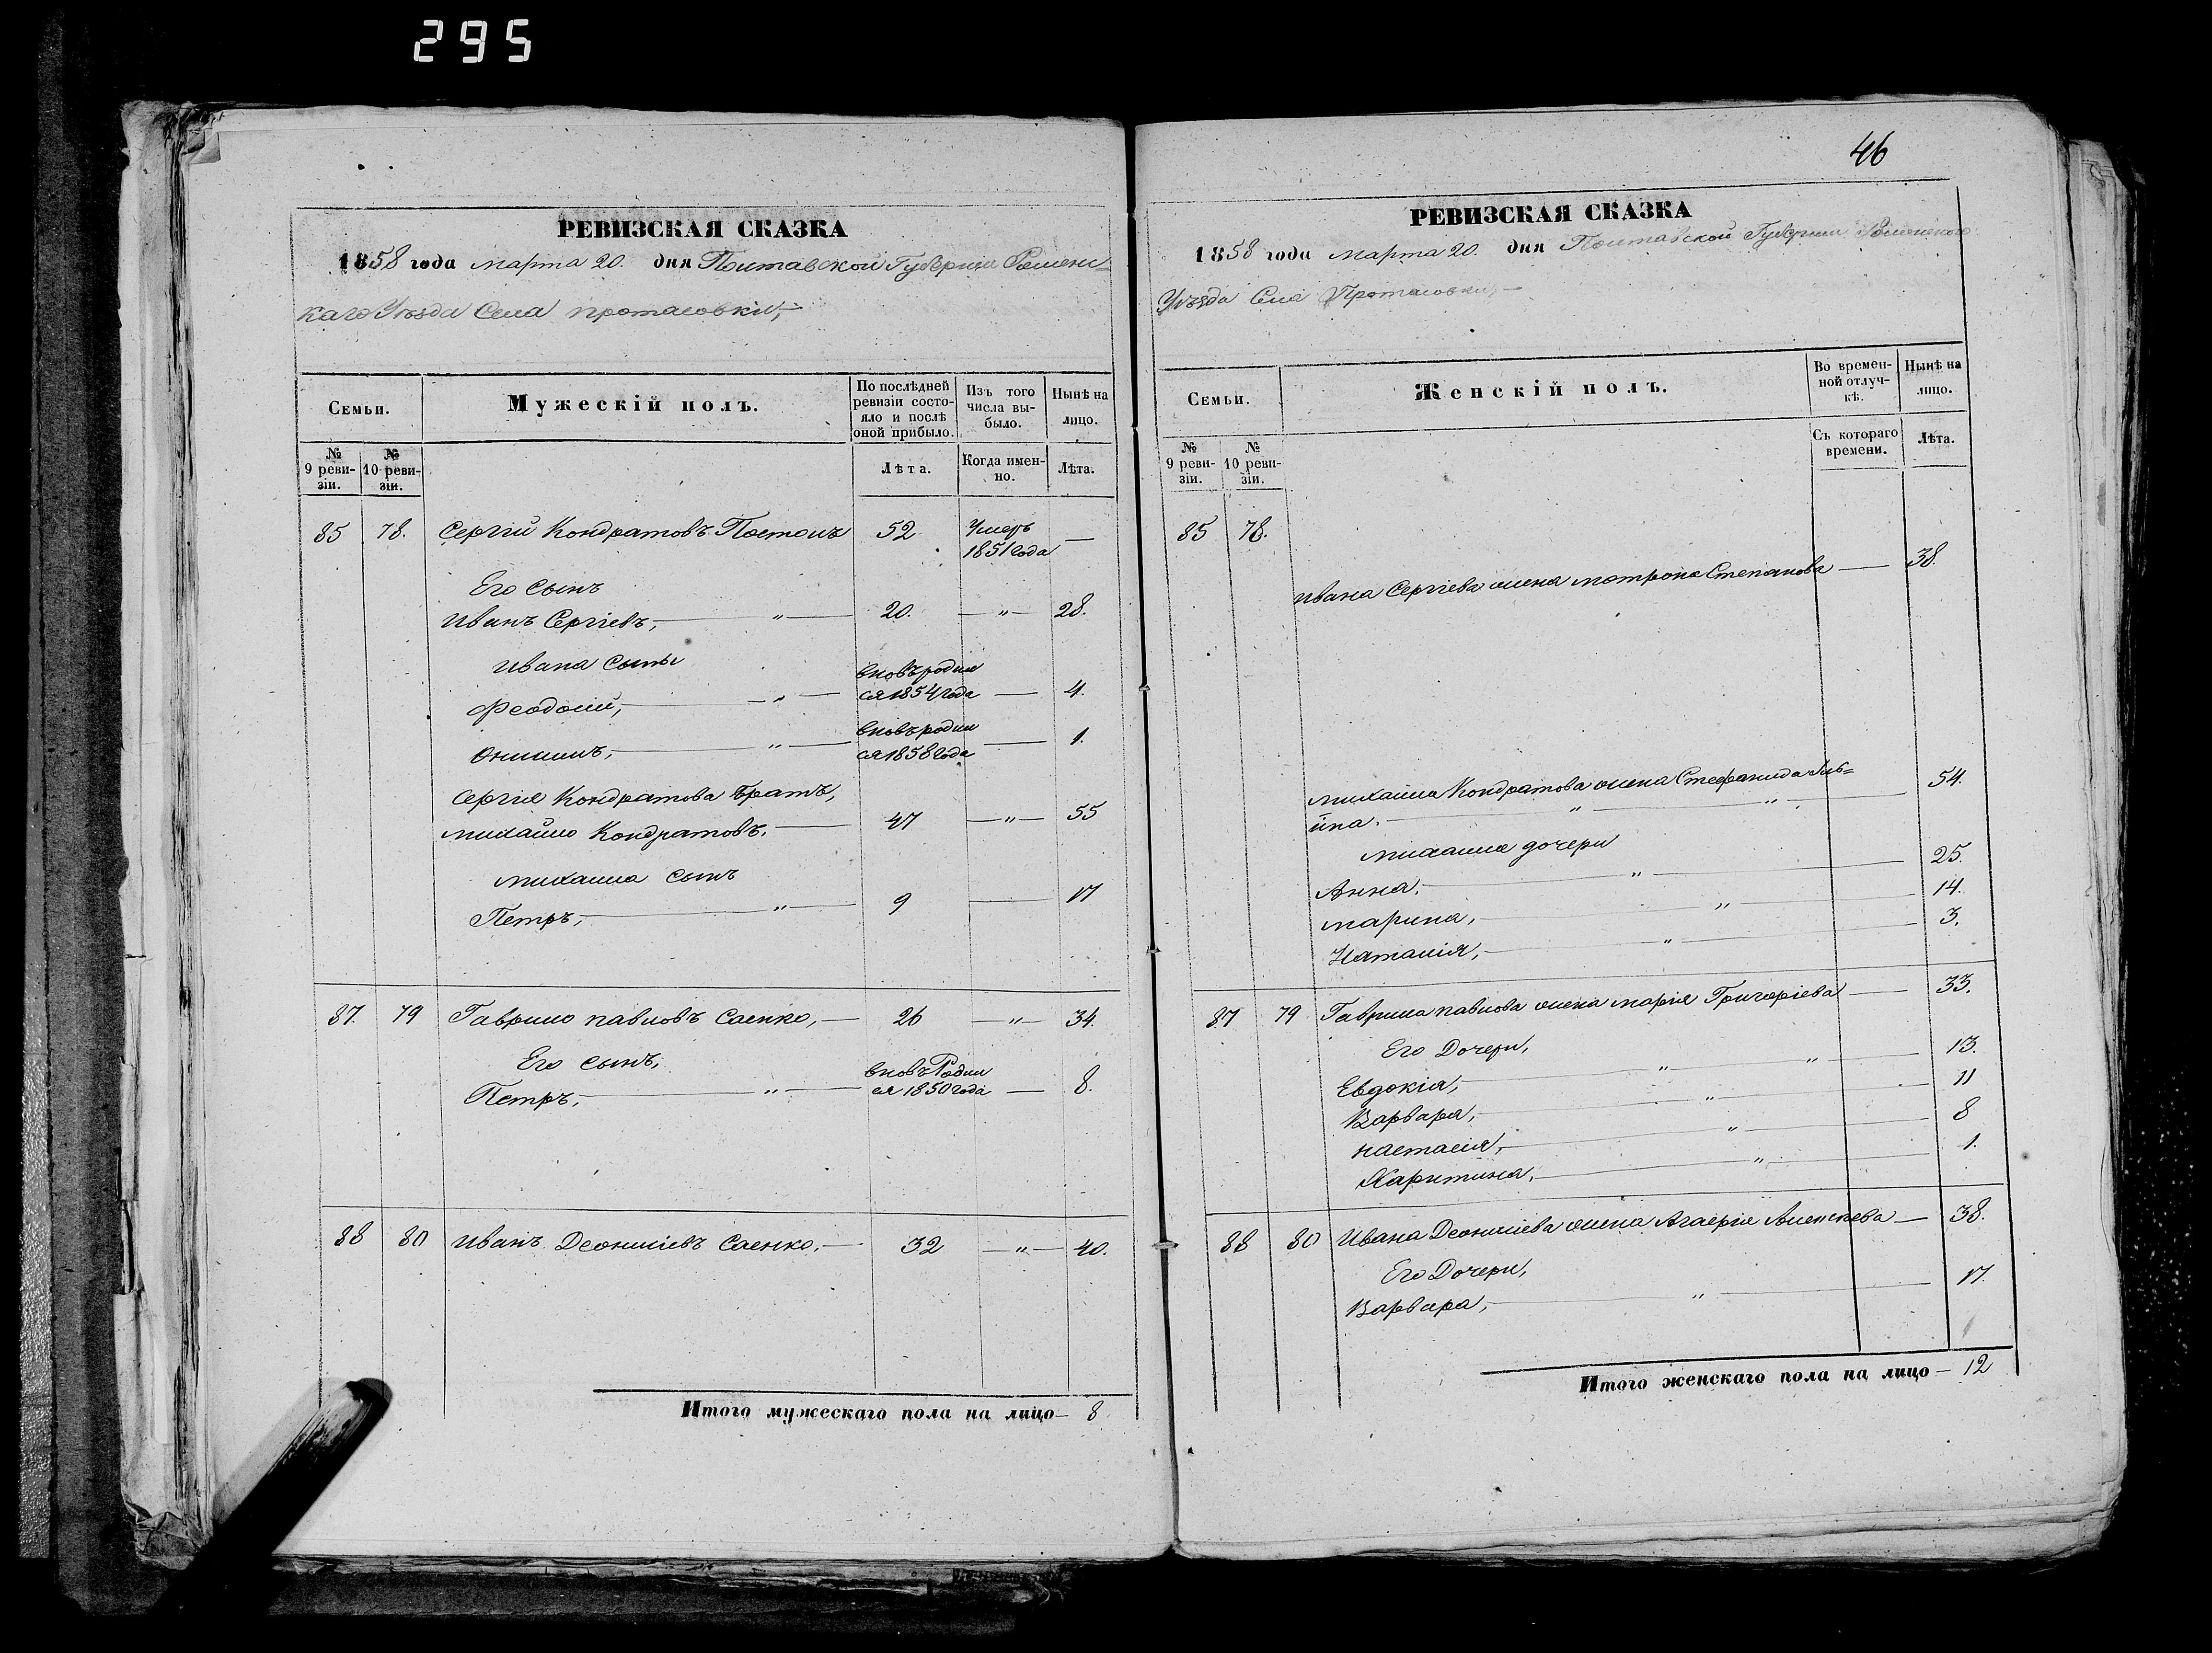 295
РЕВИЗСКАЯ СКАЗКА
1858 года марта 20. дня Полтавской Губерніи Роменс-
каго Уѣзда Села протасовки,
Семьи.
Мужескій полъ.
По послѣдней ревизіи состояло и послѣ оной прибыло.
Изъ того числа выбыло.
Нынѣ на лицо.
№ 9 ревизіи.
№ 10 ревизіи.
Лѣта.
Когда именно.
Лѣта.
85 78. Сергій Кондратовъ 52 Умеръ 1851 года —
Его сынъ
Иванъ Сергіевъ, — " — 20. — " — 28.
Ивана сыны
Феодосій, — " — вновь родил ся 1854 года — 4.
Онисимъ, — " — вновь родил ся 1858 года — 1.
Сергія Кондратова братъ,
михайло Кондратовъ. — 47 — " — 55
михаила сынъ
Петръ, — " — 9 — 17
87. 79 Гаврило павловъ Саенко, — 26 — " — 34.
Его сынъ,
Петръ, — " — вновь Родил ся 1850 года — 8.
88 80 Иванъ Деонисіевъ Саенко. — 32 — " — 40.
Итого мужескаго пола на лицо — 8
46
РЕВИЗСКАЯ СКАЗКА
1858 года марта 20. дня Полтавской Губерніи Роменского
Уѣзда Села Протасовки, —
Семьи.
Женскій полъ.
Во временной отлучкѣ.
Нынѣ на лицо.
№ 9 ревизіи.
№ 10 ревизіи.
Съ котораго времени.
Лѣта.
85 78.
Ивана Сергіева жена матрона Степанова — 38.
михайла Кондратова жена Стефанида Иль=
ина. — " — " — 54.
михаила дочери
Анна. — " — 25.
марина, — " — 14.
Наталія, — " — 3.
87 79 Гаврила павлова жена марія Григоріева — 33.
Его Дочери,
Евдокія, — " — " — 13.
Варвара, — " — 11
настасія, — " — 8
Харитина. — " — 1.
88 80 Ивана Деонисіева жена Агафія Алексѣева — 38.
Его Дочери,
Варвара, — " — 17.
Итого женскаго пола на лицо — 12